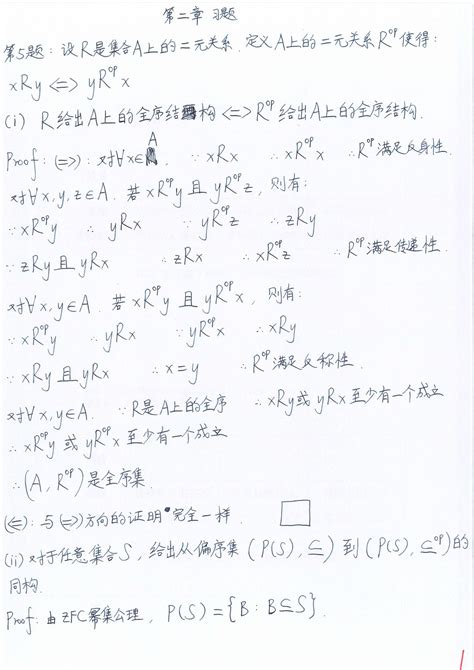 第二章 习题
第5题：设R是集合A上的二元关系，定义A上的二元关系R^op使得：
xRy <=> yR^op x
(i) R给出A上的全序结构 <=> R^op给出A上的全序结构.
Proof: (=>): 对∀x∈A. ∵xRx ∴xR^op x ∴R^op满足反身性.
对∀x,y,z∈A. 若xR^op y且yR^op z，则有：
∵xR^op y ∴yRx ∵yR^op z ∴zRy
∵zRy且yRx ∴zRx ∴xR^op z ∴R^op满足传递性.
对∀x,y∈A. 若xR^op y且yR^op x，则有：
∵xR^op y ∴yRx ∵yR^op x ∴xRy
∵xRy且yRx ∴x=y ∴R^op满足反称性.
对∀x,y∈A. ∵R是A上的全序 ∴xRy或yRx至少有一个成立
∴xR^op y或yR^op x至少有一个成立
∴(A, R^op)是全序集
(<=): 与(=>)方向的证明完全一样.
(ii) 对于任意集合S，给出从偏序集(P(S), ⊆)到(P(S), ⊆^op)的
同构.
Proof: 由ZFC幂集公理，P(S)={B: B⊆S}.
1